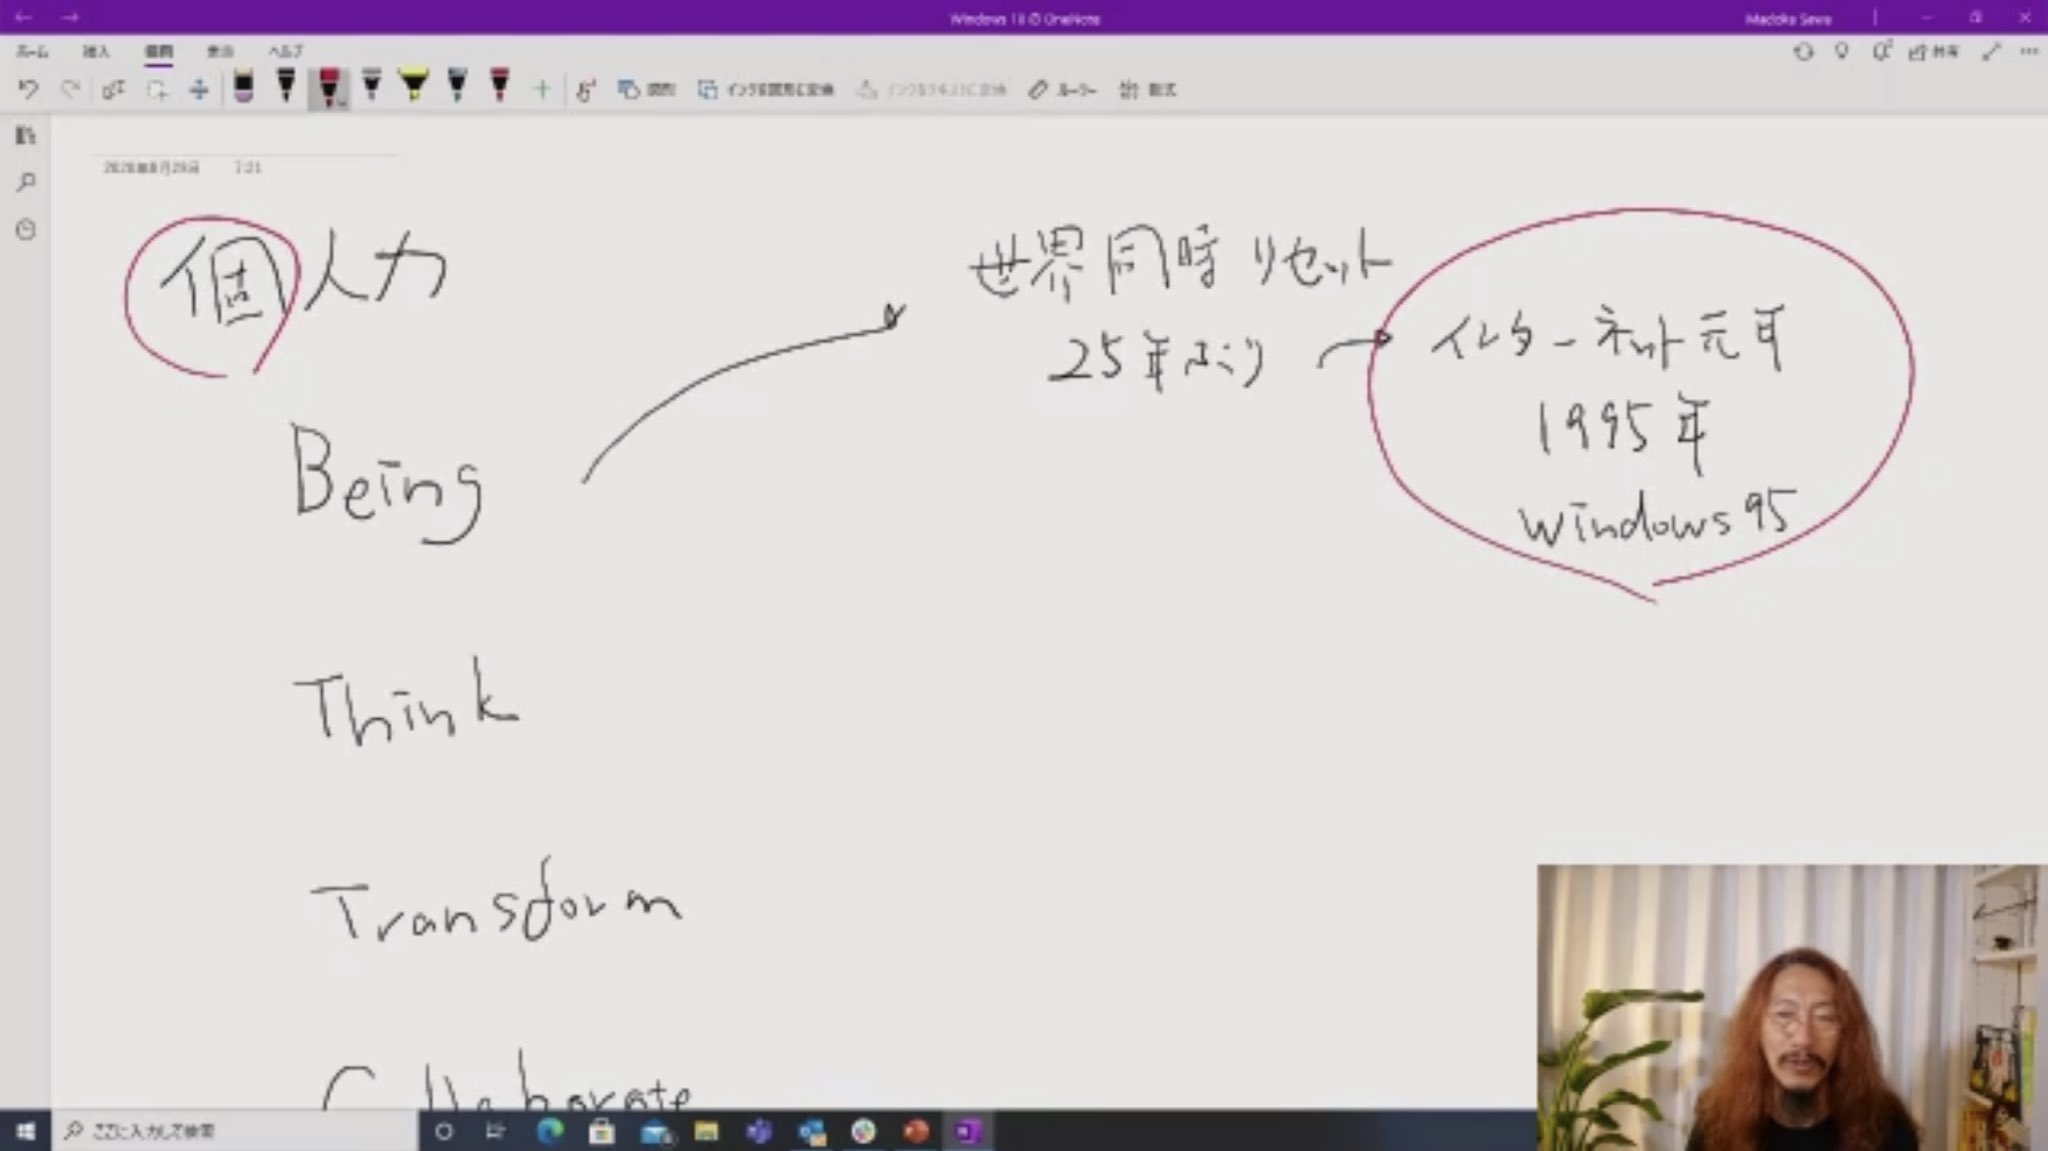 Windows 10 の OneNote
Madoka Sawa
ホーム 挿入 描画 表示 ヘルプ
共有
図形 インクを図形に変換 インクをテキストに変換 ルーラー 数式
2020年8月28日 7:21
個人力
世界同時リセット
25年ぶり
インターネット元年
1995年
Windows 95
Being
Think
Transform
Collaborate
ここに入力して検索